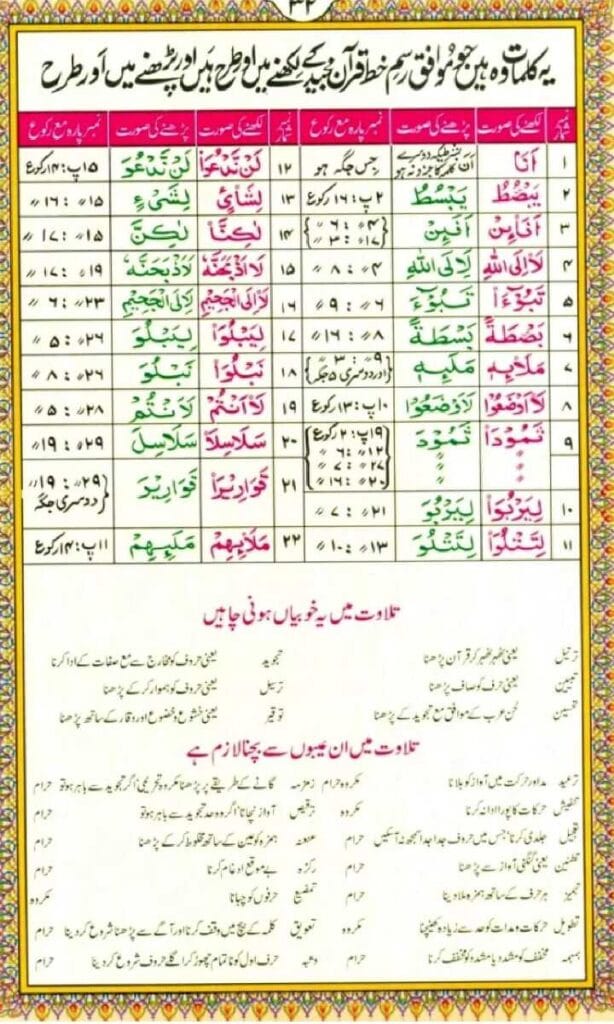 ۳۲
یہ کلمات وہ ہیں جو موافق رسم خط قرآن مجید کے لکھنے میں اور طرح ہیں اور پڑھنے میں اور طرح
نمبر شمار لکھنے کی صورت پڑھنے کی صورت نمبر پارہ مع رکوع نمبر شمار لکھنے کی صورت پڑھنے کی صورت نمبر پارہ مع رکوع
۱ اَنَا اَنَ جس جگہ ہو ۱۲ لَنْ نَّدْعُوَا۟ لَنْ نَّدْعُوَ ۱۵پ: ۱۴رکوع
۲ یَبْصُۜطُ یَبْسُطُ ۲پ: ۱۶رکوع ۱۳ لِشَایْءٍ لِشَیْءٍ ۱۵〃: ۱۶〃
۳ اَفَا۟ئِنْ اَفَئِنْ ۴〃: ۶〃 ۱۷〃: ۳〃 ۱۴ لٰكِنَّا۟ لٰكِنَّ ۱۵〃: ۱۷〃
۴ لَا۟اِلَی اللهِ لَاِلَی اللهِ ۴〃: ۸〃 ۱۵ لَا۟اَذْبَحَنَّهٗ لَاَذْبَحَنَّهٗ ۱۹〃: ۱۷〃
۵ تَبُوْٓءَا۟ تَبُوْٓءَ ۶〃: ۹〃 ۱۶ لَا۟اِلَی الْجَحِیْمِ لَاِلَی الْجَحِیْمِ ۲۳〃: ۶〃
۶ بَصْۜطَةً بَسْطَةً ۸〃: ۱۶〃 ۱۷ لِیَبْلُوَا۟ لِیَبْلُوَ ۲۶〃: ۵〃
۷ مَلَا۟ئِهٖ مَلَئِهٖ ۹〃: ۳〃 اور دوسری ۵ جگہ ۱۸ نَبْلُوَا۟ نَبْلُوَ ۲۶〃: ۸〃
۸ لَا۟اَوْضَعُوْا لَاَوْضَعُوْا ۱۰پ: ۱۳رکوع ۱۹ لَا۟اَنْتُمْ لَاَنْتُمْ ۲۸〃: ۵〃
۹ ثَمُوْدَا۟ ثَمُوْدَ ۱۲〃: ۶〃 ۱۹پ: ۲رکوع ۲۷〃: ۷〃 ۲۰〃: ۱۶〃 ۲۰ سَلٰسِلَا۟ سَلَاسِلَ ۲۹〃: ۱۹〃
۲۱ قَوَارِیْرَا۟ قَوَارِیْرَ ۲۹〃: ۱۹〃 دوسری جگہ
۱۰ لِیَرْبُوَا۟ لِیَرْبُوَ ۲۱〃: ۷〃
۱۱ لِتَتْلُوَا۟ لِتَتْلُوَ ۱۳〃: ۱۰〃 ۲۲ مَلَا۟ئِهِمْ مَلَئِهِمْ ۱۱پ: ۱۴رکوع
تلاوت میں یہ خوبیاں ہونی چاہیں
ترتیل یعنی ٹھہر ٹھہر کر قرآن پڑھنا تجوید یعنی حروف کو مخارج سے مع صفات کے ادا کرنا
تبیین یعنی حرف کو صاف پڑھنا ترسیل یعنی حروف کو ہموار کر کے پڑھنا
تحسین لحن عرب کے موافق مع تجوید کے پڑھنا توقیر یعنی خشوع و خضوع اور وقار کے ساتھ پڑھنا
تلاوت میں ان عیبوں سے بچنا لازم ہے
ترعید مد اور حرکت میں آواز کو ہلانا مکروہ حرام زمزمہ گانے کے طریقے پر پڑھنا مکروہ تحریمی اگر تجوید سے باہر ہو تو حرام
تنفیش حرکات کا پورا ادا نہ کرنا مکروہ ترقیص آواز نچانا اگر وہ حد تجوید سے باہر ہو تو حرام
تعجیل جلدی کرنا جس میں حروف جدا جدا سمجھ نہ آسکیں حرام عنعنہ ہمزہ کو عین کے ساتھ مخلوط کر کے پڑھنا حرام
تطنین یعنی گنگنی آواز سے پڑھنا حرام رکزہ بے موقع ادغام کرنا حرام
تہمیز ہر حرف کے ساتھ ہمزہ ملا دینا حرام تمضیغ حرفوں کو چبانا مکروہ
تطویل حرکات و مدات کو حد سے زیادہ کھینچنا مکروہ تعویق کلمہ کے بیچ میں وقف کرنا اور آگے سے پڑھنا شروع کر دینا حرام
ہمہمہ مخفف کو مشدد یا مشدد کو مخفف کرنا حرام وثبہ حرف اول کو ناتمام چھوڑ کر اگلے حروف شروع کر دینا حرام